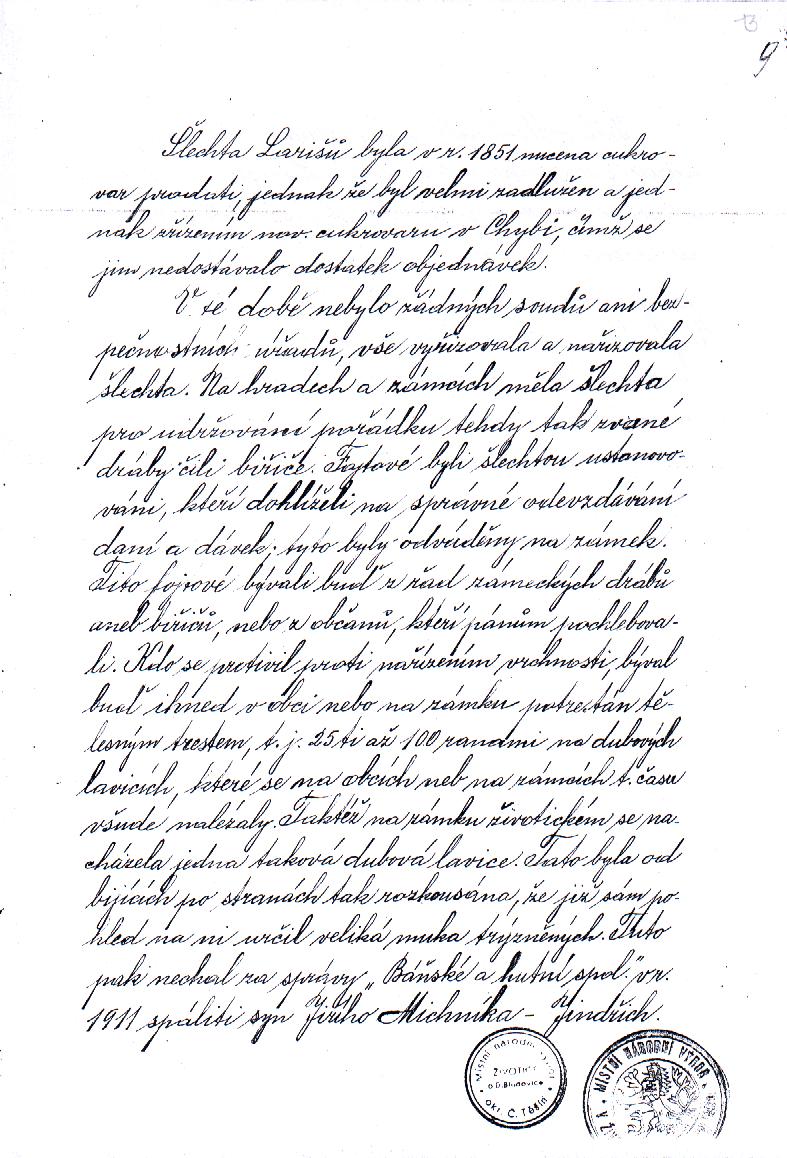 9
Šlechta Larišů byla v r. 1851 nucena cukro-
var prodati, jednak že byl velmi zadlužen a jed-
nak zřízením nov. cukrovaru v Chybí, čímž se
jim nedostávalo dostatek objednávek.
V té době nebylo žádných soudů ani bez-
pečnostních úřadů, vše vyřizovala a nařizovala
šlechta. Na hradech a zámcích měla šlechta
pro udržování pořádku tehdy tak zvané
dráby čili biřiče. Fojtové byli šlechtou ustanovo-
váni, kteří dohlíželi na správné odevzdávání
daní a dávek; tyto byly odváděny na zámek.
Tito fojtové bývali buď z řad zámeckých drábů
aneb biřičů, nebo z občanů, kteří pánům pochlebova-
li. Kdo se protivil proti nařízením vrchnosti, býval
buď ihned v obci nebo na zámku potrestán tě-
lesným trestem, t. j. 25ti až 100 ranami na dubových
lavicích, které se na obcích neb na zámcích t. času
všude nalézaly. Taktéž na zámku životickém se na-
cházela jedna taková dubová lavice. Tato byla od
bijících po stranách tak rozkousána, že již sám po-
hled na ni určil veliká muka trýzněných. Tuto
pak nechal za správy „Báňské a hutní spol." v r.
1911 spáliti syn Jiřího Michníka – Jindřich.
Místní národní výbor
ŽIVOTICE
o.D.Bludovice
okr. Č. Těšín
MÍSTNÍ NÁRODNÍ VÝBOR